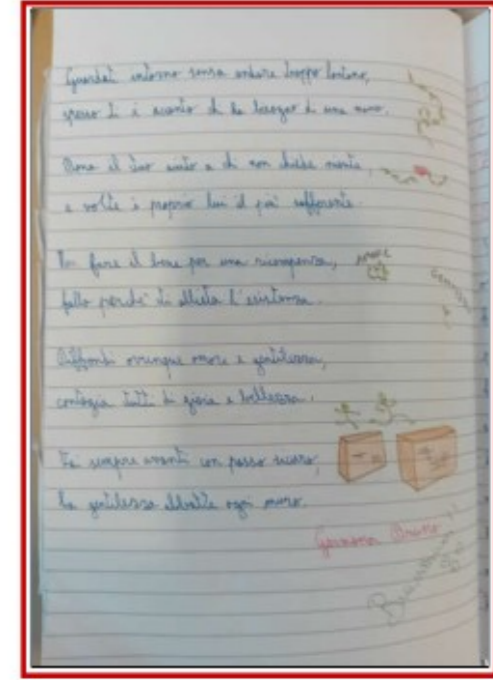 Guardati intorno senza andare troppo lontano,
spesso ti è accanto chi ha bisogno di una mano.
Dona il tuo aiuto a chi non chiede niente,
a volte è proprio lui il più sofferente.
Non fare il bene per una ricompensa,
fallo perché ti allieta l'esistenza.
Diffondi ovunque amore e gentilezza,
contagia tutti di gioia e bellezza.
Vai sempre avanti con passo sicuro,
la gentilezza abbatte ogni muro.